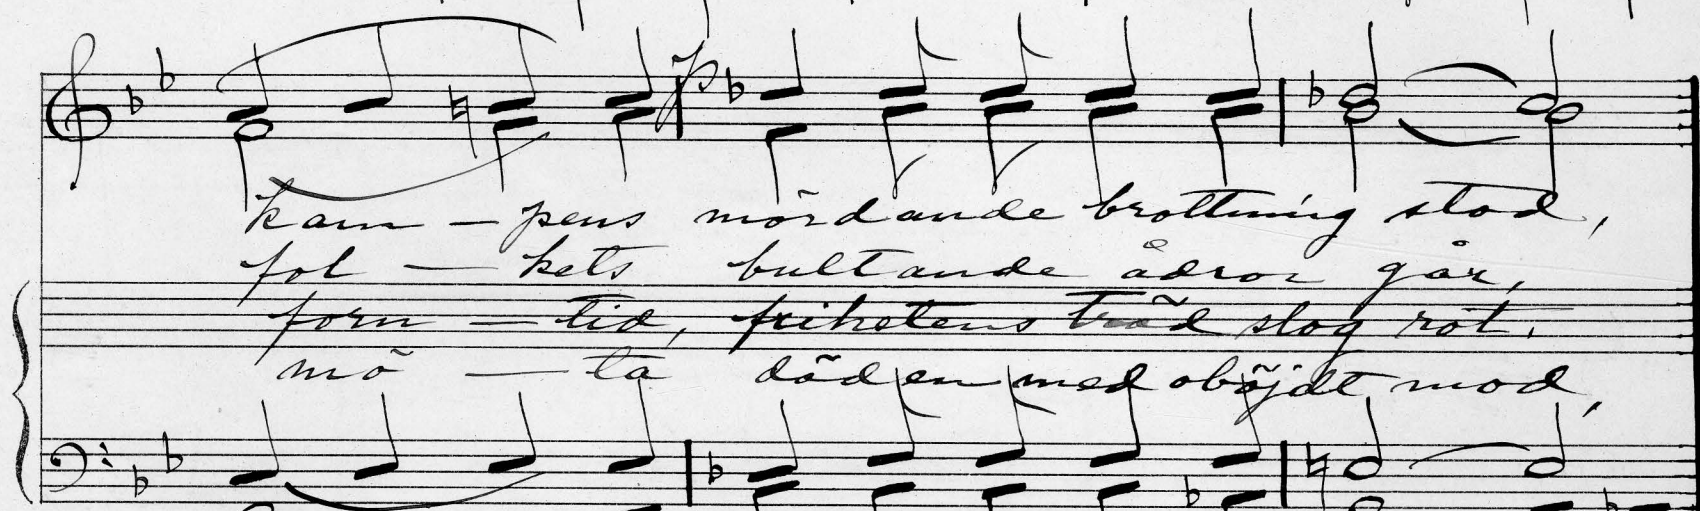 p
kam - pens mördande brottning stod,
fol - kets bultande ådror går,
forn - tid, frihetens träd slog rot.
mö - ta döden med oböjdt mod,